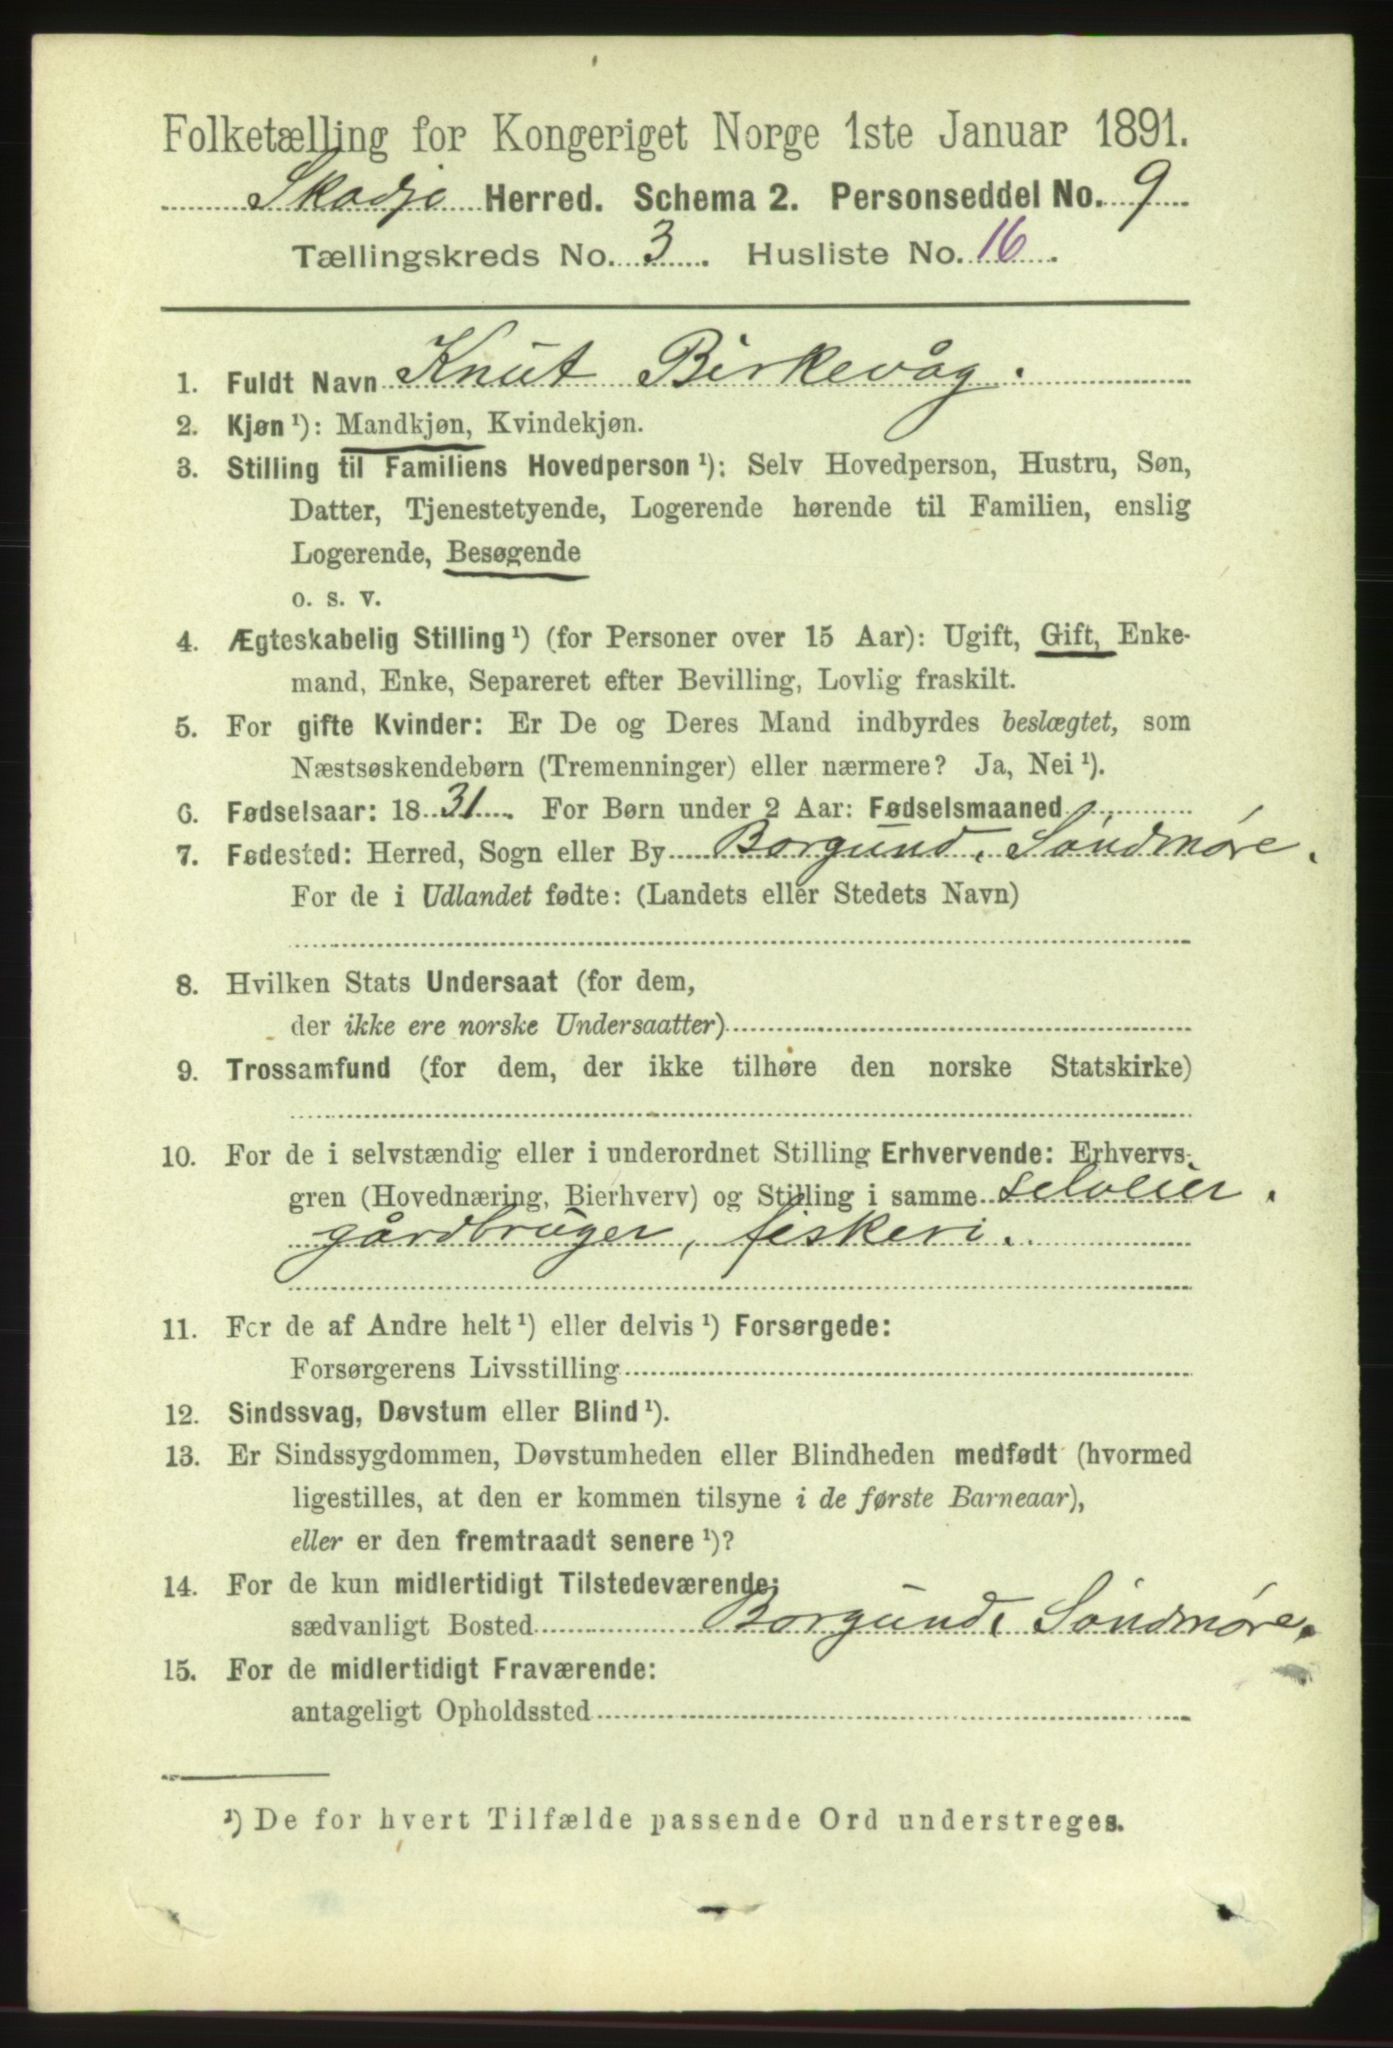 Folketælling for Kongeriget Norge 1ste Januar 1891.
Skodje Herred. Schema 2. Personseddel No. 9
Tællingskreds No. 3. Husliste No. 16.
1. Fuldt Navn Knut Birkevåg.
2. Kjøn¹): Mandkjøn, Kvindekjøn.
3. Stilling til Familiens Hovedperson¹): Selv Hovedperson, Hustru, Søn,
Datter, Tjenestetyende, Logerende hørende til Familien, enslig
Logerende, Besøgende
o. s. v.
4. Ægteskabelig Stilling¹) (for Personer over 15 Aar): Ugift, Gift, Enke-
mand, Enke, Separeret efter Bevilling, Lovlig fraskilt.
5. For gifte Kvinder: Er De og Deres Mand indbyrdes beslægtet, som
Næstsøskendebørn (Tremenninger) eller nærmere? Ja, Nei¹).
6. Fødselsaar: 1831. For Børn under 2 Aar: Fødselsmaaned
7. Fødested: Herred, Sogn eller By Borgund, Söndmøre.
For de i Udlandet fødte: (Landets eller Stedets Navn)
8. Hvilken Stats Undersaat (for dem,
der ikke ere norske Undersaatter)
9. Trossamfund (for dem, der ikke tilhøre den norske Statskirke)
10. For de i selvstændig eller i underordnet Stilling Erhvervende: Erhvervs-
gren (Hovednæring, Bierhverv) og Stilling i samme selveier.
gårdbruger, fiskeri.
11. For de af Andre helt¹) eller delvis¹) Forsørgede:
Forsørgerens Livsstilling
12. Sindssvag, Døvstum eller Blind¹).
13. Er Sindssygdommen, Døvstumheden eller Blindheden medfødt (hvormed
ligestilles, at den er kommen tilsyne i de første Barneaar),
eller er den fremtraadt senere¹)?
14. For de kun midlertidigt Tilstedeværende:
sædvanligt Bosted Borgund, Söndmøre.
15. For de midlertidigt Fraværende:
antageligt Opholdssted
¹) De for hvert Tilfælde passende Ord understreges.